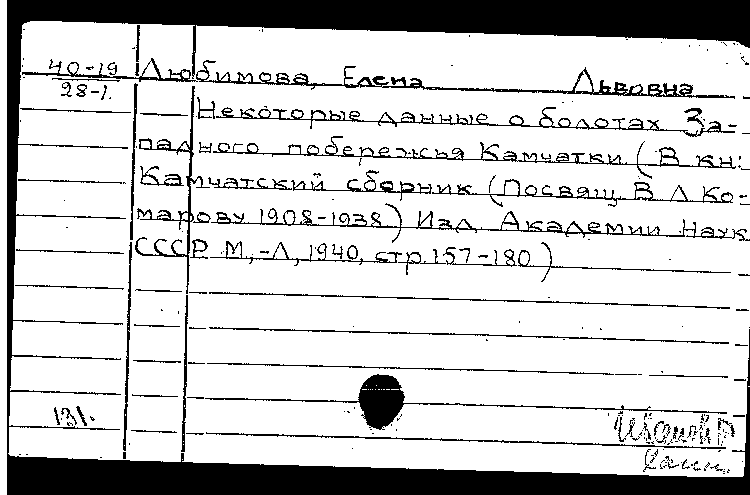 40-19 Любимова, Елена Львовна
28-1.
Некоторые данные о болотах За-
падного побережья Камчатки (В кн:
Камчатский сборник (Посвящ. В Л Ко-
марову 1908-1938) Изд. Академии Наук
СССР М,-Л, 1940, стр. 157-180)
131.